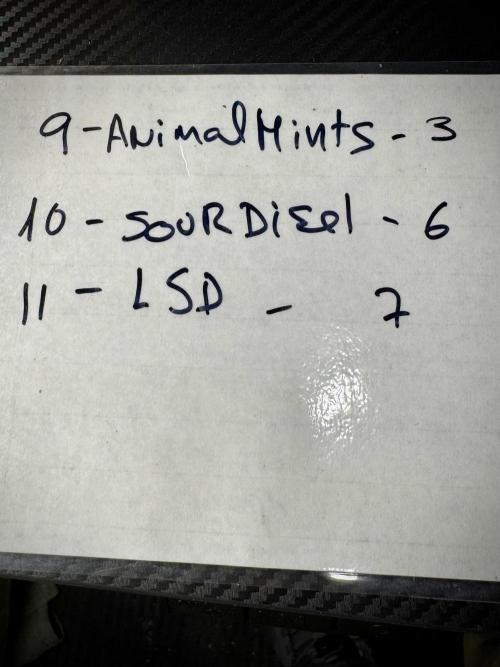 9 - AnimalMints - 3
10 - SOURDiesel - 6
11 - LSD - 7